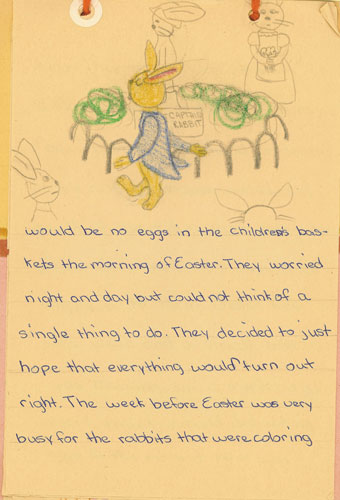 CAPTAIN
RABBIT
would be no eggs in the children's bas-
kets the morning of Easter. They worried
night and day but could not think of a
single thing to do. They decided to just
hope that everything would turn out
right. The week before Easter was very
busy for the rabbits that were coloring